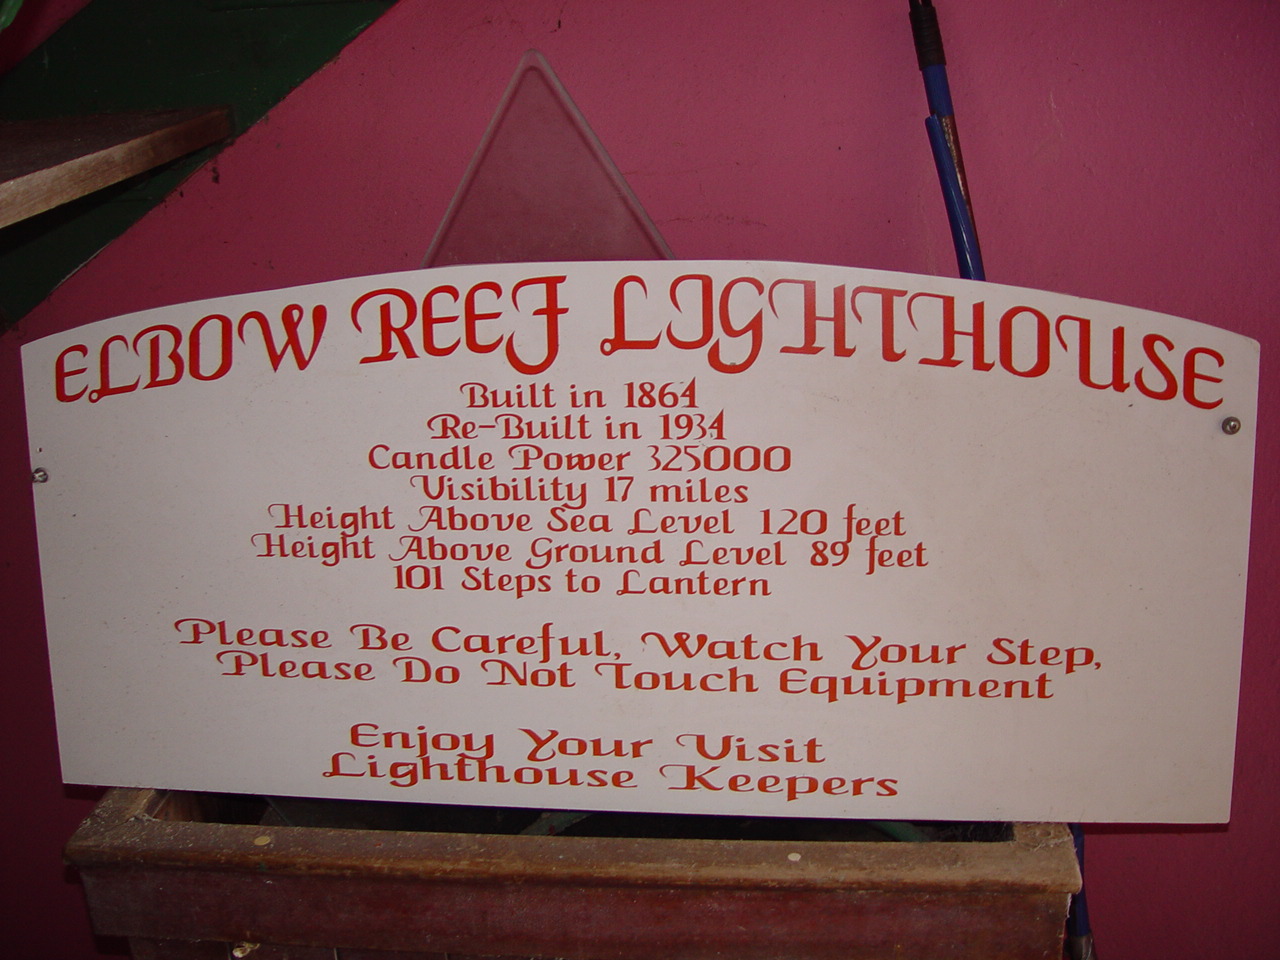 ELBOW REEF LIGHTHOUSE
Built in 1864
Re-Built in 1934
Candle Power 325000
Visibility 17 miles
Height Above Sea Level 120 feet
Height Above Ground Level 89 feet
101 Steps to Lantern
Please Be Careful, Watch Your Step,
Please Do Not Touch Equipment
Enjoy Your Visit
Lighthouse Keepers